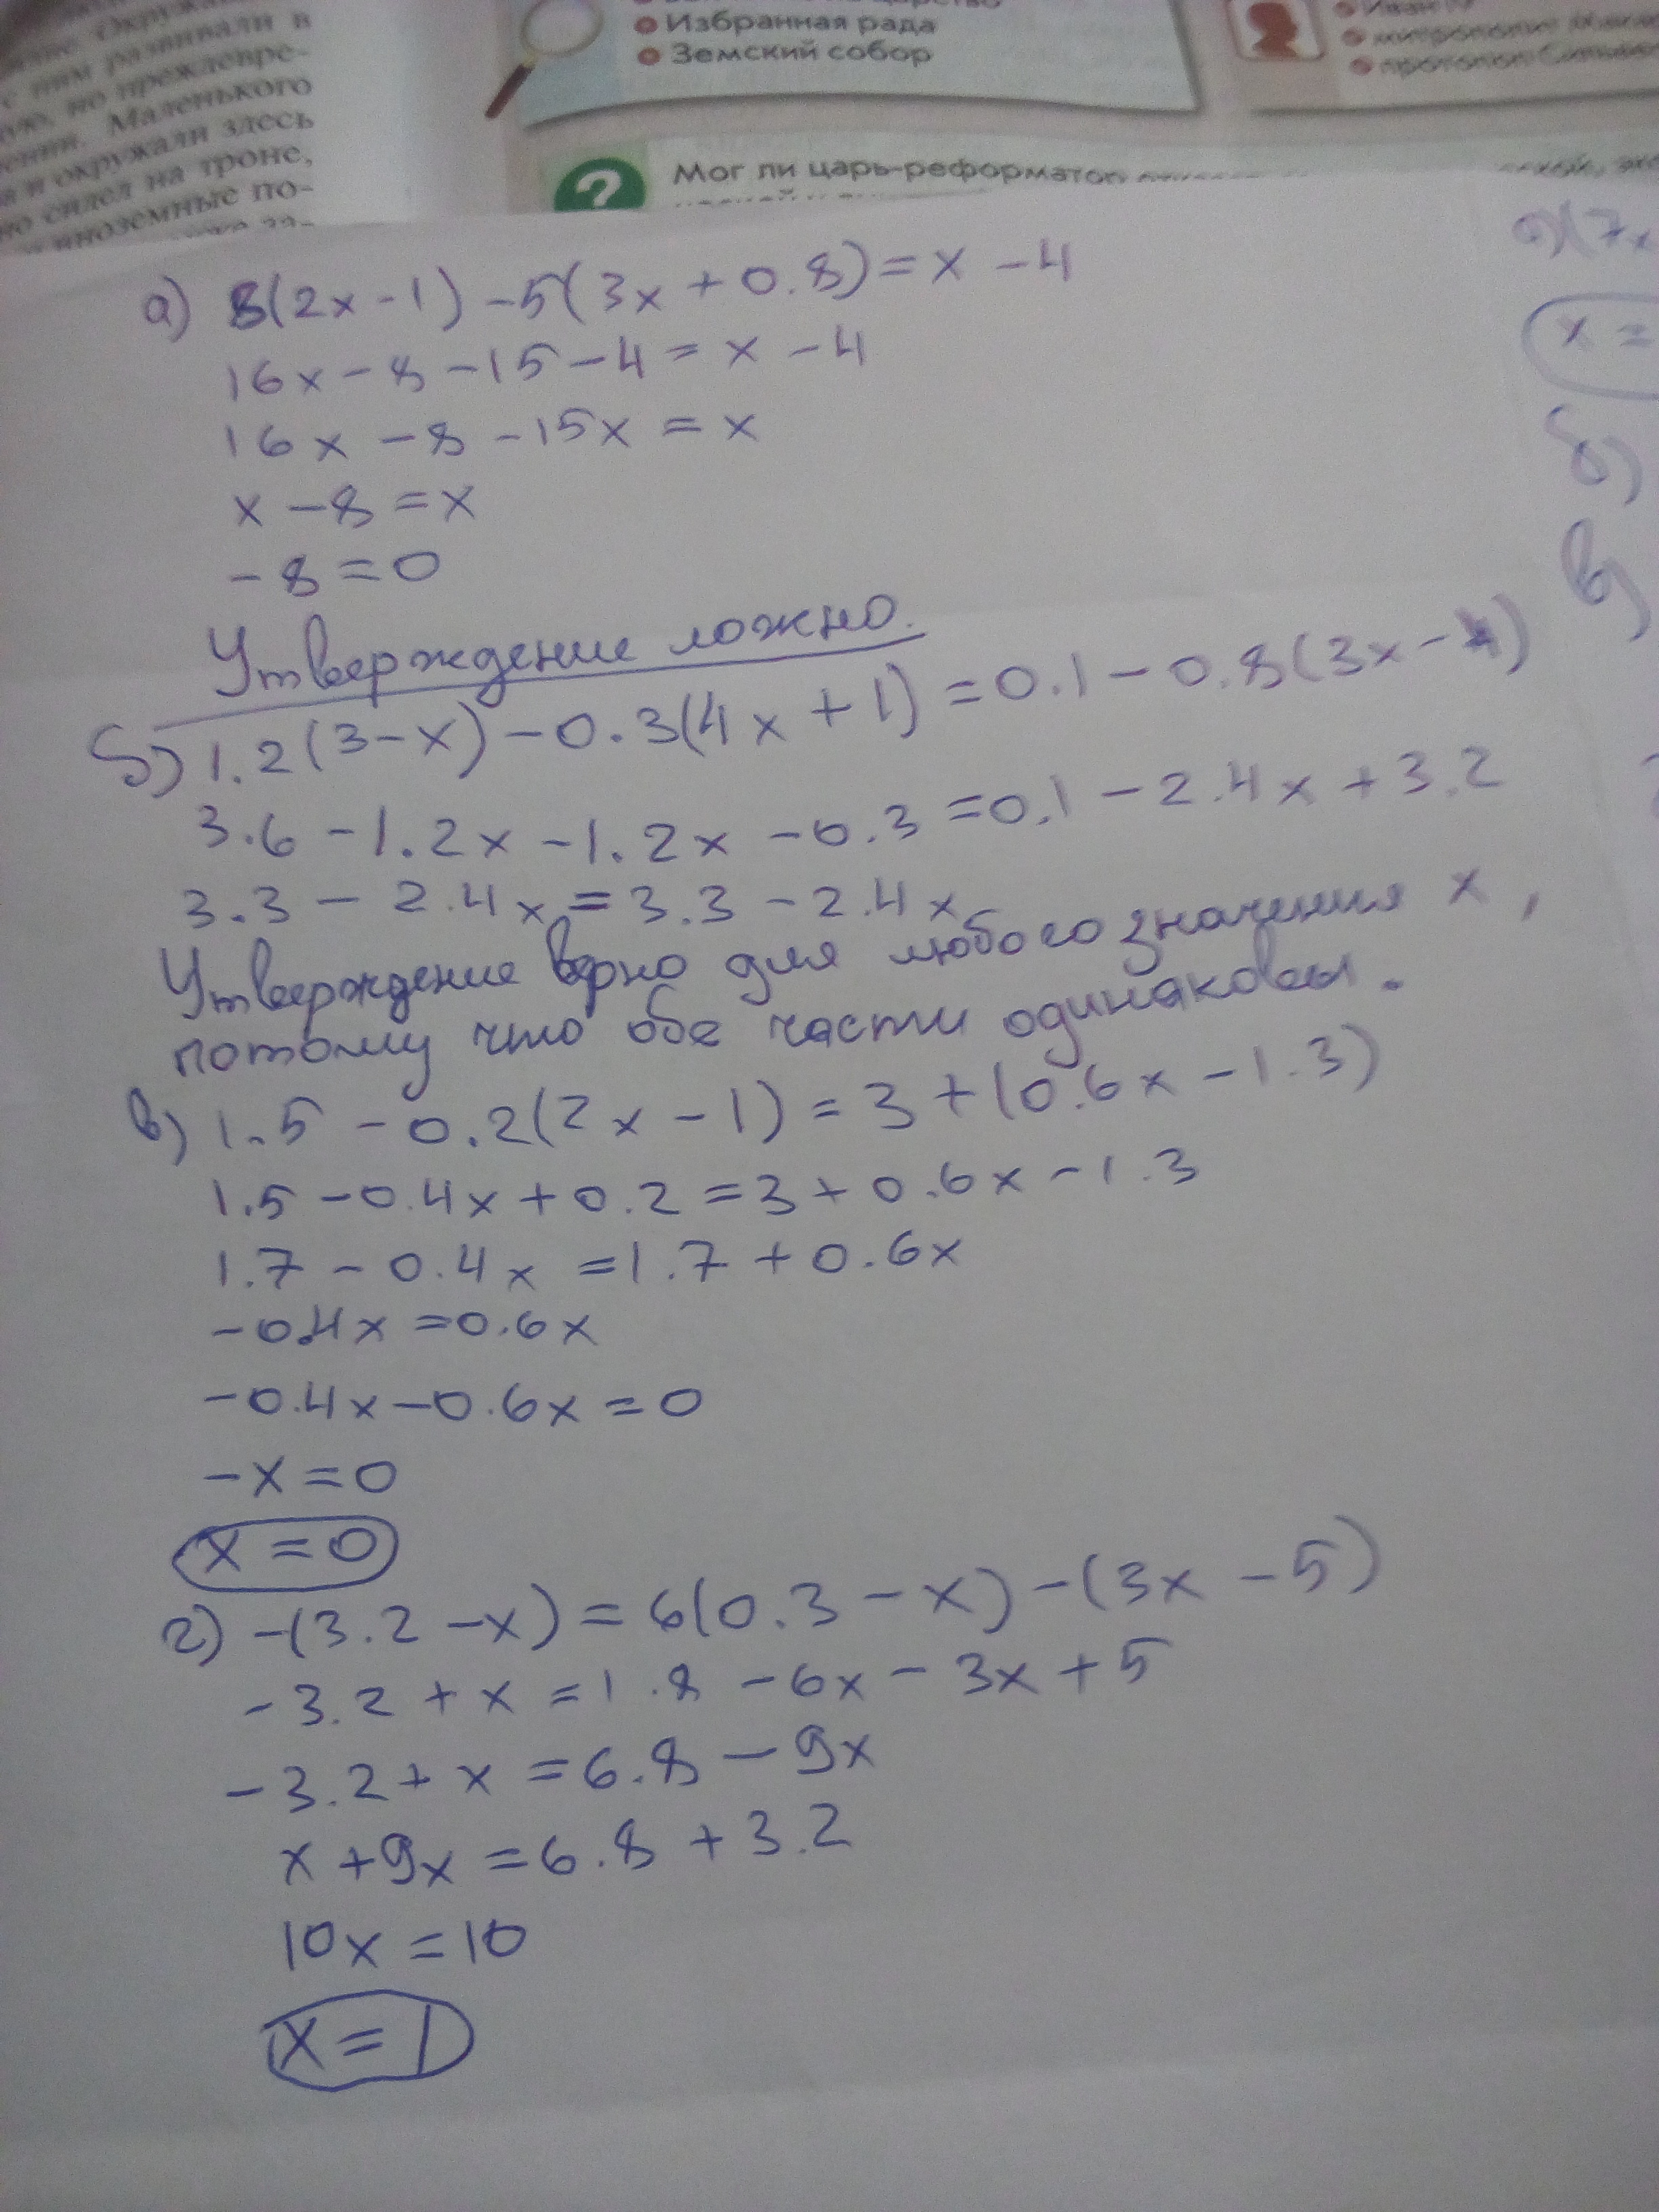 с ним развивали в
но преждевре-
Маленького
и окружали здесь
сидел на троне,
иноземные по-
Избранная рада
Земский собор
?
Мог ли царь-реформатор
а) 8(2x-1)-5(3x+0.8)=x-4
16x-8-15-4=x-4
16x-8-15x=x
x-8=x
-8=0
Утверждение ложно.
б) 1.2(3-x)-0.3(4x+1)=0.1-0.8(3x-4)
3.6-1.2x-1.2x-0.3=0.1-2.4x+3.2
3.3-2.4x=3.3-2.4x
Утверждение верно для любого значения x,
потому что обе части одинаковы.
в) 1.5-0.2(2x-1)=3+(0.6x-1.3)
1.5-0.4x+0.2=3+0.6x-1.3
1.7-0.4x=1.7+0.6x
-0.4x=0.6x
-0.4x-0.6x=0
-x=0
x=0
г) -(3.2-x)=6(0.3-x)-(3x-5)
-3.2+x=1.8-6x-3x+5
-3.2+x=6.8-9x
x+9x=6.8+3.2
10x=10
x=1
x=
б)
в)